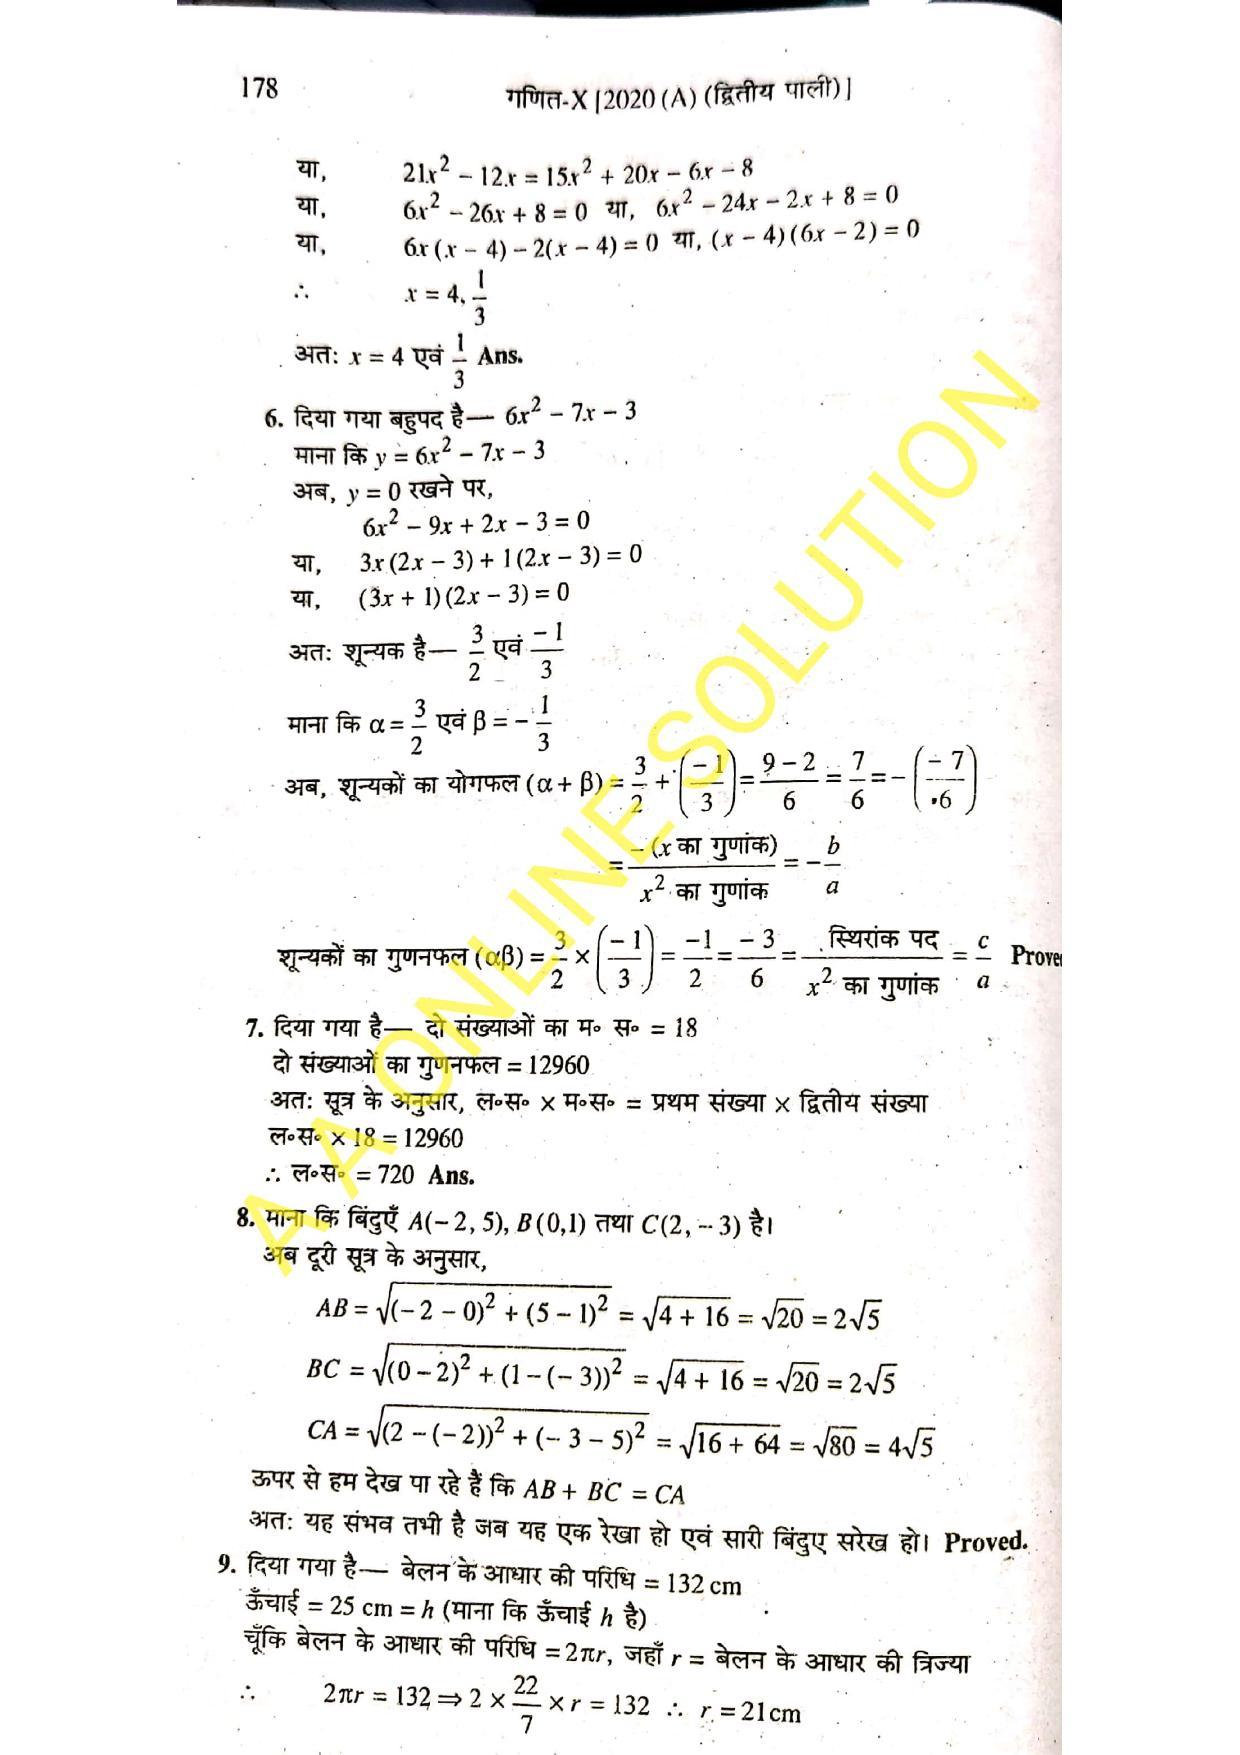 178
गणित-X [2020 (A) (द्वितीय पाली)]
या, 21x² − 12x = 15x² + 20x − 6x − 8
या, 6x² − 26x + 8 = 0 या, 6x² − 24x − 2x + 8 = 0
या, 6x(x − 4) − 2(x − 4) = 0 या, (x − 4)(6x − 2) = 0
∴ x = 4, 1/3
अतः x = 4 एवं 1/3 Ans.
6. दिया गया बहुपद है— 6x² − 7x − 3
माना कि y = 6x² − 7x − 3
अब, y = 0 रखने पर,
6x² − 9x + 2x − 3 = 0
या, 3x(2x − 3) + 1(2x − 3) = 0
या, (3x + 1)(2x − 3) = 0
अतः शून्यक है— 3/2 एवं −1/3
माना कि α = 3/2 एवं β = −1/3
अब, शून्यकों का योगफल (α + β) = 3/2 + (−1/3) = (9 − 2)/6 = 7/6 = −(−7/6)
= −(x का गुणांक)/x² का गुणांक = −b/a
शून्यकों का गुणनफल (αβ) = 3/2 × (−1/3) = −1/2 = −3/6 = स्थिरांक पद/x² का गुणांक = c/a Prove
7. दिया गया है— दो संख्याओं का म॰ स॰ = 18
दो संख्याओं का गुणनफल = 12960
अतः सूत्र के अनुसार, ल॰स॰ × म॰स॰ = प्रथम संख्या × द्वितीय संख्या
ल॰स॰ × 18 = 12960
∴ ल॰स॰ = 720 Ans.
8. माना कि बिंदुएँ A(−2, 5), B(0,1) तथा C(2, −3) है।
अब दूरी सूत्र के अनुसार,
AB = √((−2 − 0)² + (5 − 1)²) = √(4 + 16) = √20 = 2√5
BC = √((0 − 2)² + (1 − (−3))²) = √(4 + 16) = √20 = 2√5
CA = √((2 − (−2))² + (−3 − 5)²) = √(16 + 64) = √80 = 4√5
ऊपर से हम देख पा रहे हैं कि AB + BC = CA
अतः यह संभव तभी है जब यह एक रेखा हो एवं सारी बिंदुए सरेख हो। Proved.
9. दिया गया है— बेलन के आधार की परिधि = 132 cm
ऊँचाई = 25 cm = h (माना कि ऊँचाई h है)
चूँकि बेलन के आधार की परिधि = 2πr, जहाँ r = बेलन के आधार की त्रिज्या
∴ 2πr = 132 ⇒ 2 × 22/7 × r = 132 ∴ r = 21cm
A A ONLINE SOLUTION